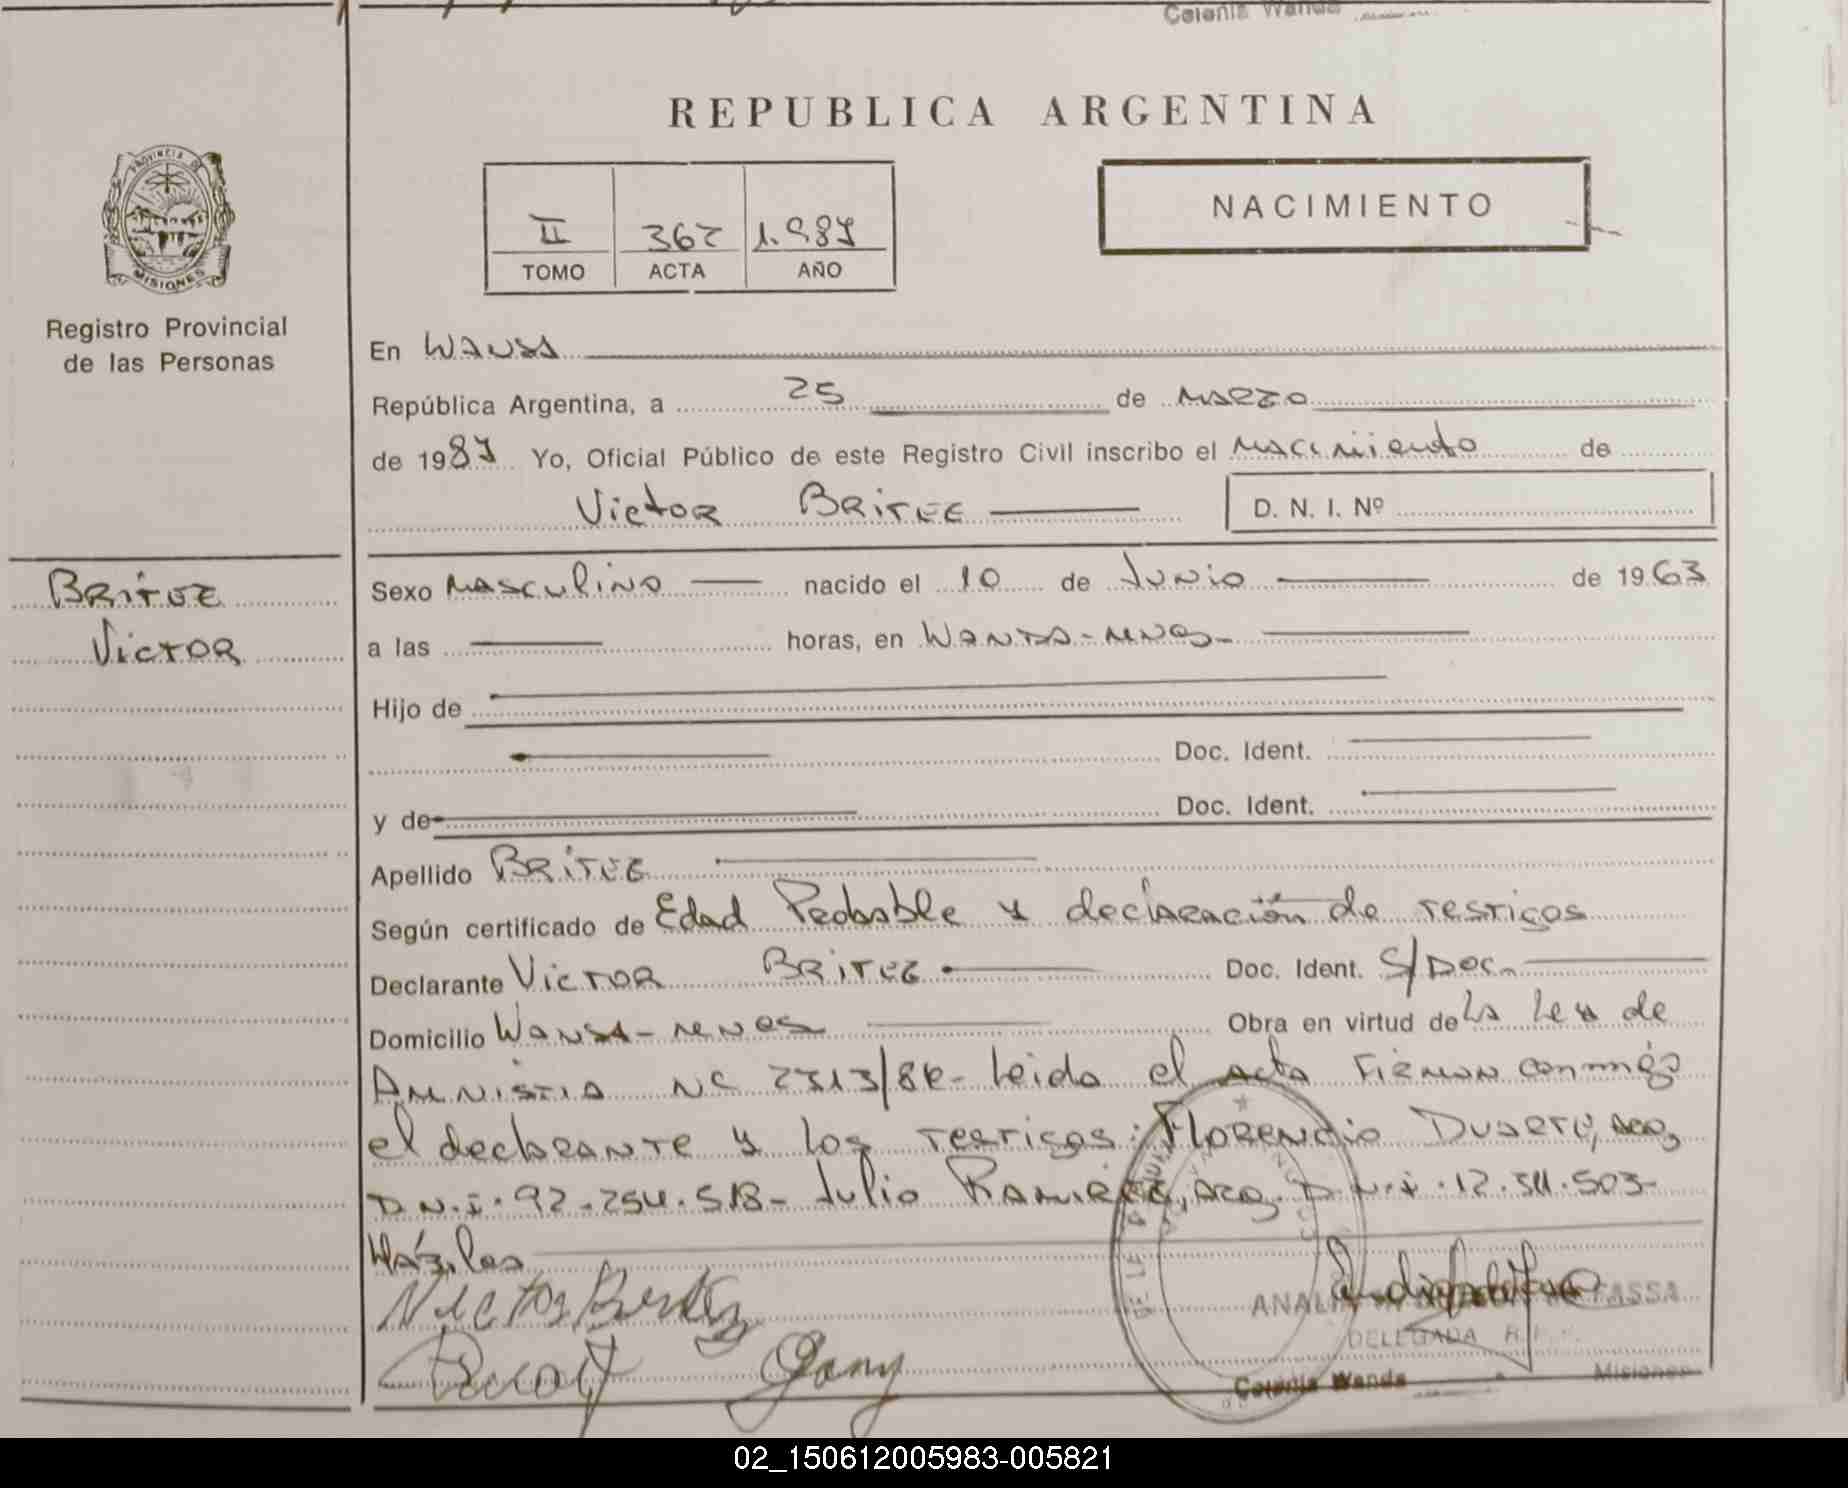 Colonia Wanda
REPUBLICA ARGENTINA
PROVINCIA DE
MISIONES
Registro Provincial
de las Personas
II 362 1.987
TOMO ACTA AÑO
NACIMIENTO
En WANDA
República Argentina, a 25 de MARZO
de 1987 Yo, Oficial Público de este Registro Civil inscribo el Nacimiento de
Victor BRITEZ D. N. I. Nº
BRITEZ
VICTOR
Sexo MASCULINO nacido el 10 de JUNIO de 1963
a las horas, en WANDA-MNES-
Hijo de
Doc. Ident.
y de Doc. Ident.
Apellido BRITEZ
Según certificado de Edad Probable y declaración de testigos
Declarante VICTOR BRITEZ Doc. Ident. S/Doc.
Domicilio WANDA-MNES Obra en virtud de La Ley de
AMNISTIA Nº 2313/86- Leida el Acta Firman conmigo
el declarante y los testigos: FLORENCIO DUARTE, ARG,
D.N.I. 92.254.518- Julio RAMIREZ, ARG. D.N.I. 12.511.503-
Hábiles
Victor Britez
DELEGADA R.P.
Colonia Wanda Misiones
02_150612005983-005821